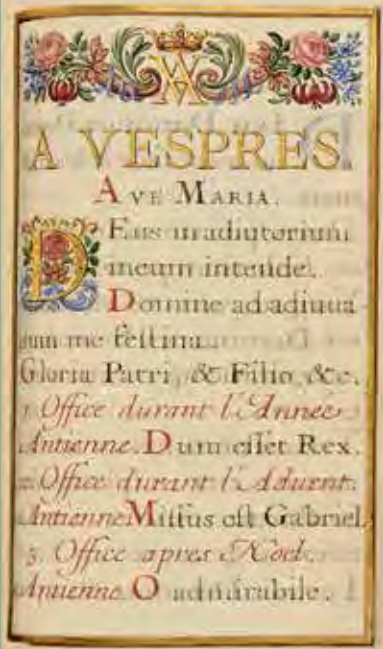 A VESPRES.
AVE MARIA.
DEus in adiutorium
meum intende.
Domine ad adiuua
dum me festina.
Gloria Patri, & Filio, &c.
1. Office durant l'Année.
Antienne. Dum esset Rex.
2. Office durant l'Aduent.
Antienne Missus est Gabriel.
3. Office apres Noel.
Antienne. O admirabile.